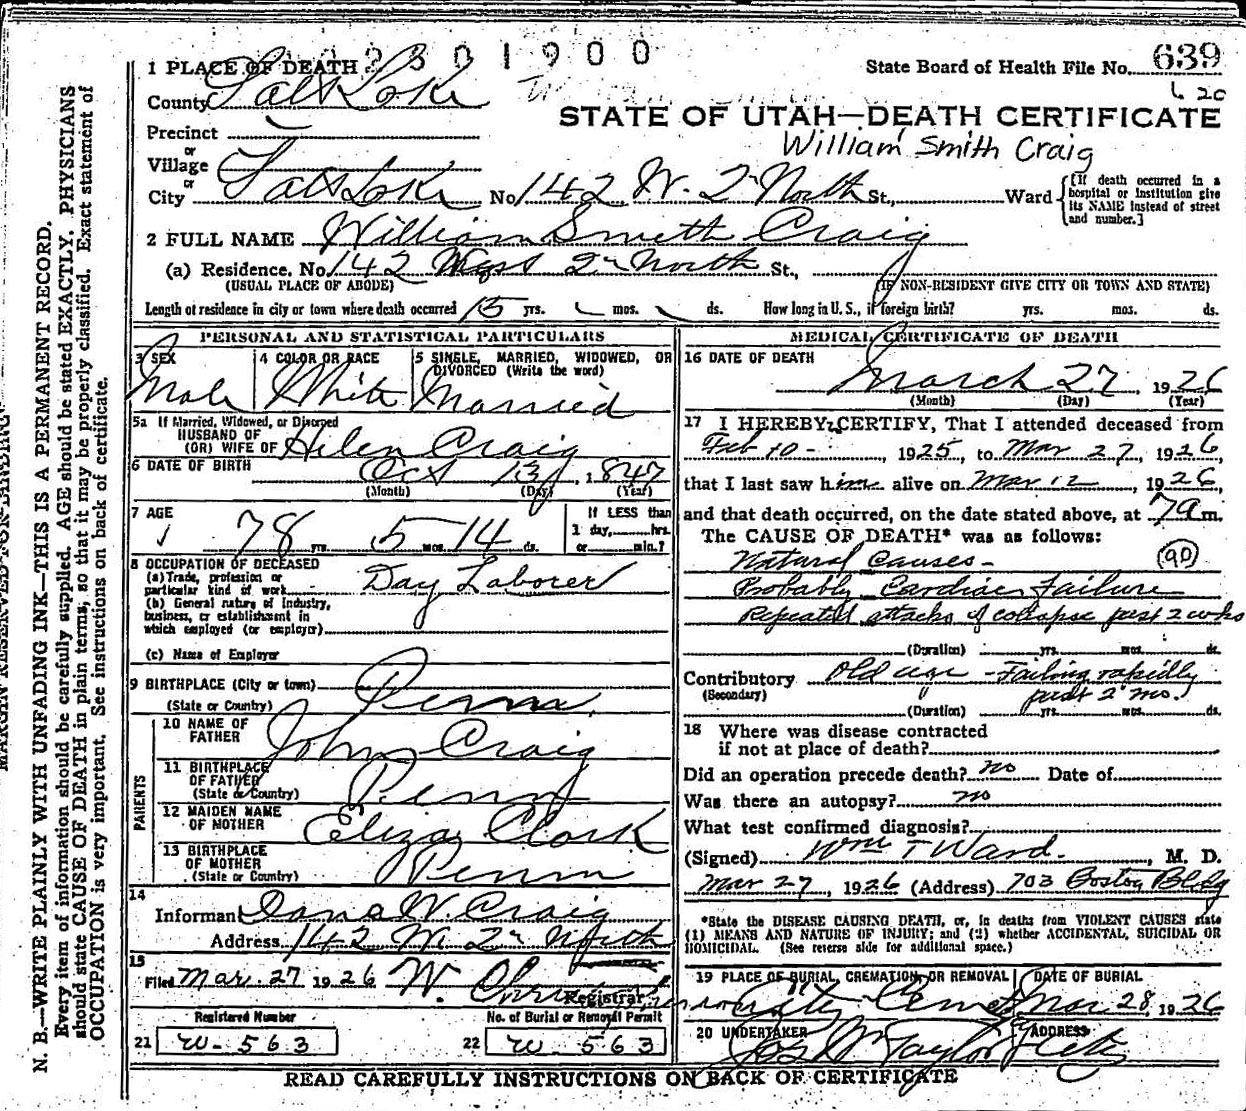 2601900
1 PLACE OF DEATH
State Board of Health File No. 639
County Salt Lake
6 20
STATE OF UTAH—DEATH CERTIFICATE
Precinct
William Smith Craig
or
Village
or
City Salt Lake No 142 W. 2nd North St., Ward
[If death occurred in a
hospital or institution give
its NAME instead of street
and number.]
2 FULL NAME William Smith Craig
(a) Residence. No 142 West 2nd North St.,
(USUAL PLACE OF ABODE) (IF NON-RESIDENT GIVE CITY OR TOWN AND STATE)
Length of residence in city or town where death occurred 15 yrs. mos. ds. How long in U. S., if foreign birth? yrs. mos. ds.
PERSONAL AND STATISTICAL PARTICULARS
3 SEX 4 COLOR OR RACE 5 SINGLE, MARRIED, WIDOWED, OR
DIVORCED (Write the word)
Male White Married
5a If Married, Widowed, or Divorced
HUSBAND OF
(OR) WIFE OF Helen Craig
6 DATE OF BIRTH Oct 13, 1847
(Month) (Day) (Year)
7 AGE If LESS than
78 yrs. 5 mos. 14 ds. 1 day, hrs.
or min.?
8 OCCUPATION OF DECEASED
(a) Trade, profession or
particular kind of work Day Laborer
(b) General nature of Industry,
business, or establishment in
which employed (or employer)
(c) Name of Employer
9 BIRTHPLACE (City or town)
(State or Country) Penna.
PARENTS
10 NAME OF
FATHER John Craig
11 BIRTHPLACE
OF FATHER
(State or Country) Penn
12 MAIDEN NAME
OF MOTHER Eliza Clark
13 BIRTHPLACE
OF MOTHER
(State or Country) Penn
14
Informant Dana W Craig
Address 142 W. 2nd North
15
Filed Mar. 27 1926 W.
Registrar
Registered Number No. of Burial or Removal Permit
21 W-563 22 W-563
MEDICAL CERTIFICATE OF DEATH
16 DATE OF DEATH
March 27, 1926
(Month) (Day) (Year)
17 I HEREBY CERTIFY, That I attended deceased from
Feb 10-, 1925, to Mar 27, 1926,
that I last saw him alive on Mar 12, 1926,
and that death occurred, on the date stated above, at 7a m.
The CAUSE OF DEATH* was as follows:
Natural Causes- 90
Probably Cardiac Failure
Repeated attacks of collapse past 2 wks
(Duration) yrs. mos. ds.
Contributory Old age - Failing rapidly
(Secondary) past 2 mo.
(Duration) yrs. mos. ds.
18 Where was disease contracted
if not at place of death?
Did an operation precede death? no Date of
Was there an autopsy? no
What test confirmed diagnosis?
(Signed) Wm T Ward., M. D.
Mar 27, 1926 (Address) 703 Boston Bldg
*State the DISEASE CAUSING DEATH, or, in deaths from VIOLENT CAUSES state
(1) MEANS AND NATURE OF INJURY; and (2) whether ACCIDENTAL, SUICIDAL OR
HOMICIDAL. (See reverse side for additional space.)
19 PLACE OF BURIAL, CREMATION OR REMOVAL DATE OF BURIAL
City Cem Mar 28, 1926
20 UNDERTAKER ADDRESS
Jos Wm Taylor City
READ CAREFULLY INSTRUCTIONS ON BACK OF CERTIFICATE
MARGIN RESERVED FOR BINDING
N. B.—WRITE PLAINLY WITH UNFADING INK—THIS IS A PERMANENT RECORD.
Every item of information should be carefully supplied. AGE should be stated EXACTLY. PHYSICIANS
should state CAUSE OF DEATH in plain terms, so that it may be properly classified. Exact statement of
OCCUPATION is very important. See instructions on back of certificate.